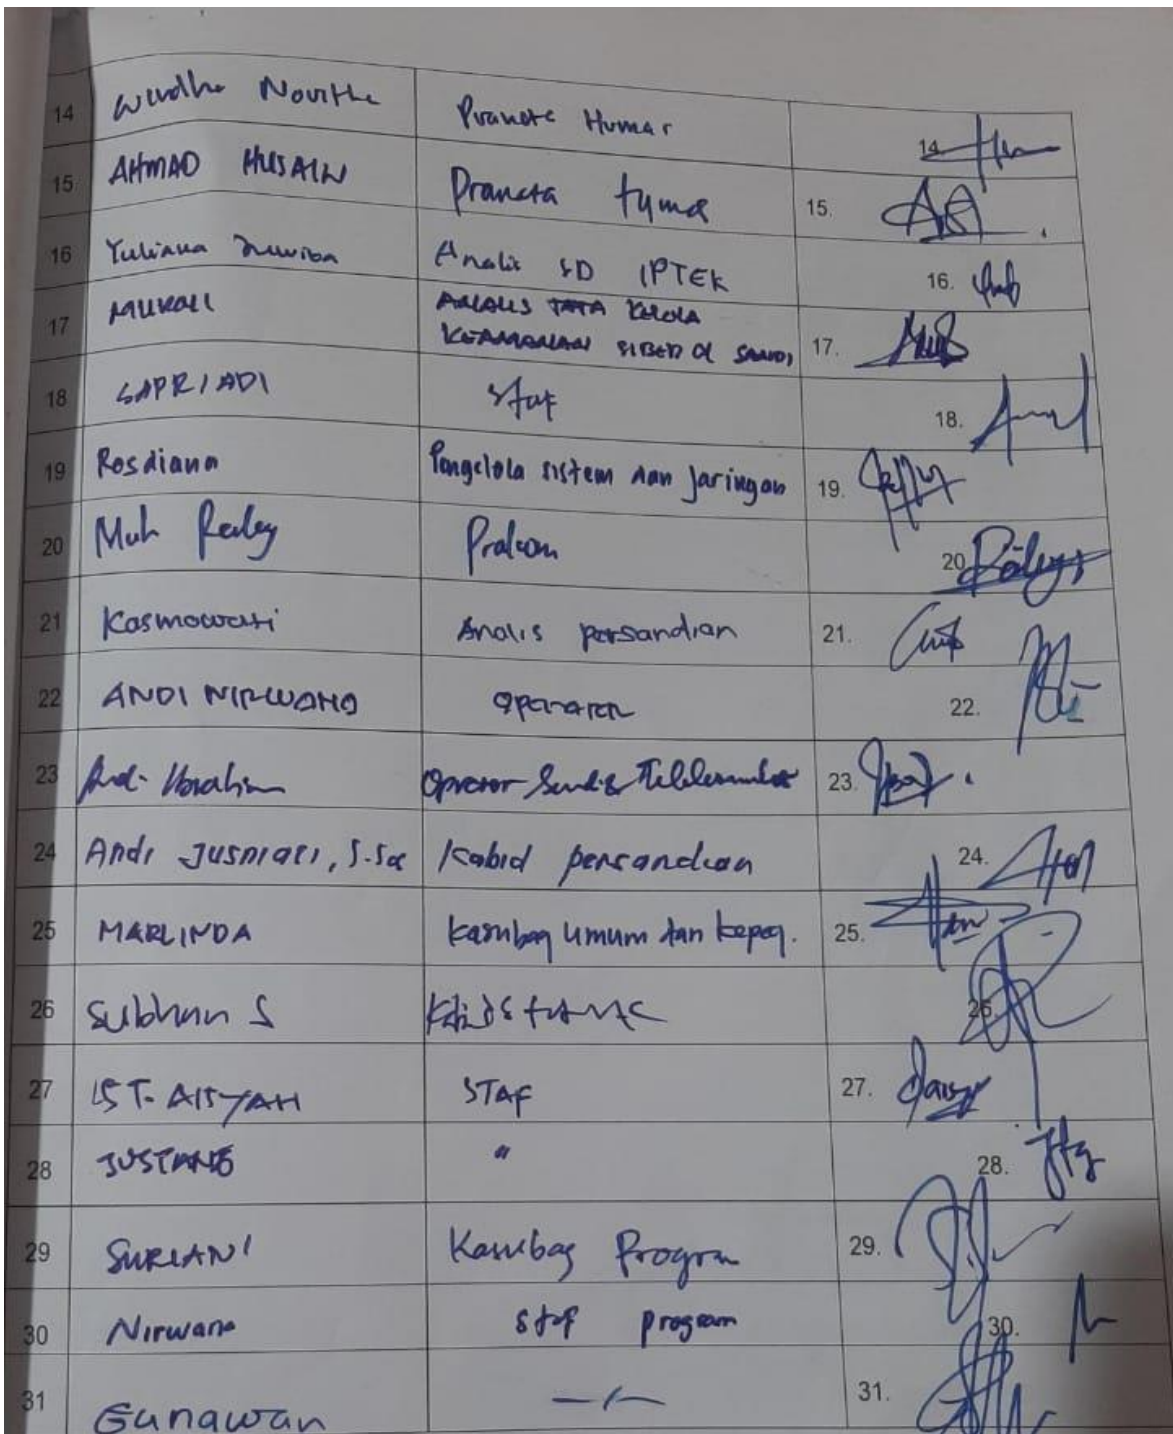 14 Novitha Pranata Humas 14.
15 AHMAD HUSAIN Pranata 15.
16 Yuliana Analis SD IPTEK 16.
17 ANALIS TATA KELOLA
KEAMANAN SIBER & SANDI 17.
18 SAPRIADI Staf 18.
19 Rosdiana Pengelola sistem dan Jaringan 19.
20 Muh Prakom 20
21 Kasmawati Analis persandian 21.
22 ANDI NIRWANA OPERATOR 22.
23 Andi Ibrahim Operator Sandi & 23.
24 Andi Jusniati, S.Sos Kabid persandian 24.
25 MARLINDA Kasubag Umum dan kepeg. 25.
26 Subhan S 26.
27 ST. AISYAH STAF 27.
28 JUSTANG " 28.
29 SURIANI Kasubag Program 29.
30 Nirwana Staf program 30.
31 Gunawan —/— 31.